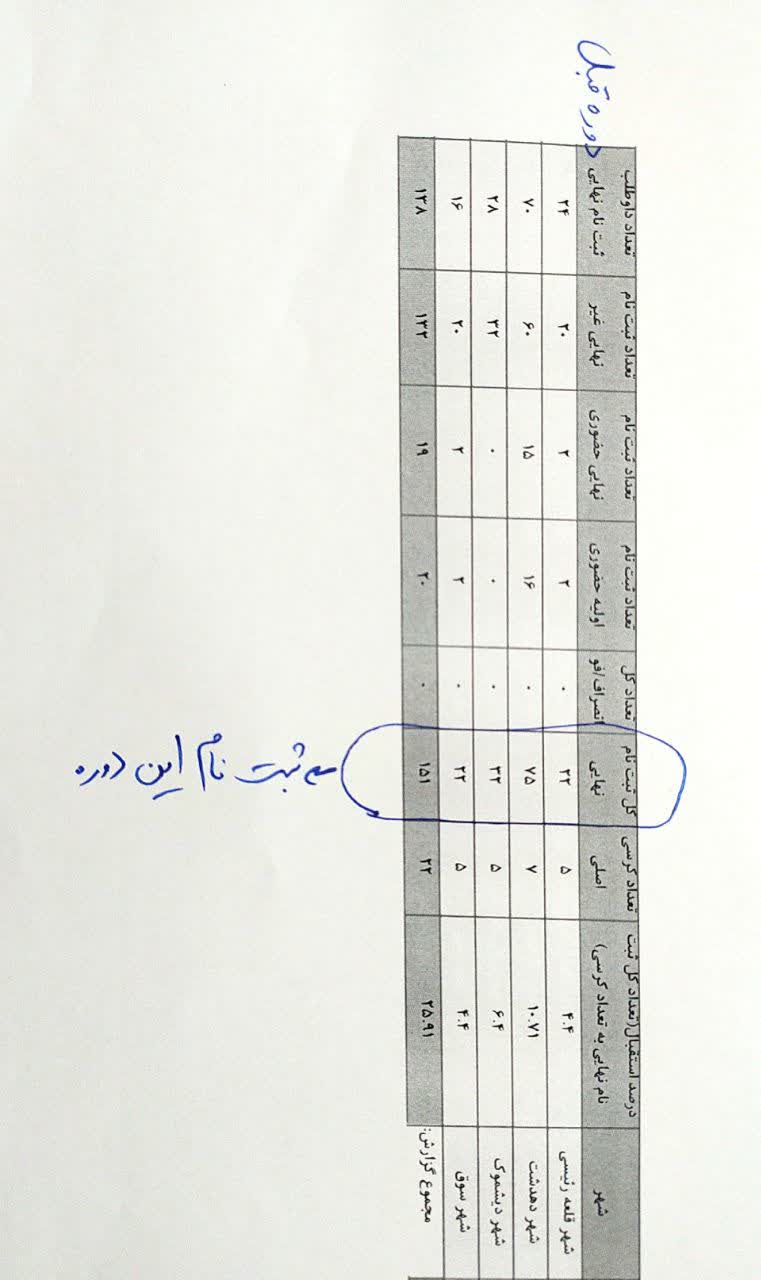 شهر
درصد استقبال(تعداد کل ثبت
نام نهایی به تعداد کرسی)
تعداد کرسی
اصلی
کل ثبت نام
نهایی
تعداد کل
انصراف/فو
تعداد ثبت نام
اولیه حضوری
تعداد ثبت نام
نهایی حضوری
تعداد ثبت نام
نهایی غیر
تعداد داوطلب
ثبت نام نهایی
شهر قلعه رئیسی ۴.۴ ۵ ۲۲ ۰ ۲ ۲ ۲۰ ۲۴
شهر دهدشت ۱۰.۷۱ ۷ ۷۵ ۰ ۱۶ ۱۵ ۶۰ ۷۰
شهر دیشموک ۶.۴ ۵ ۳۲ ۰ ۰ ۰ ۳۲ ۲۸
شهر سوق ۴.۴ ۵ ۲۲ ۰ ۲ ۲ ۲۰ ۱۶
مجموع گزارش: ۲۵.۹۱ ۲۲ ۱۵۱ ۰ ۲۰ ۱۹ ۱۳۲ ۱۳۸
دوره قبل
ثبت نام این دوره